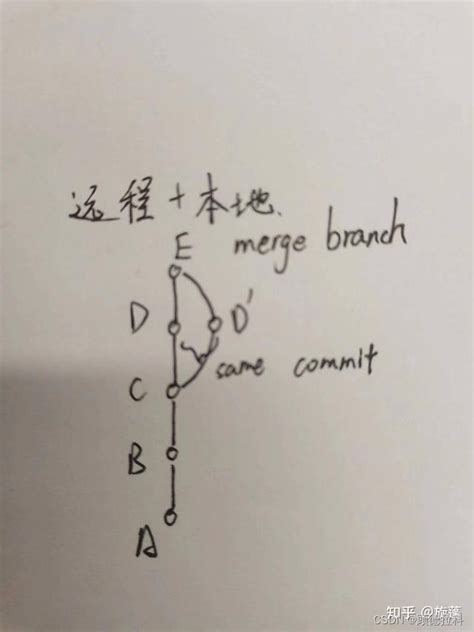 远程 + 本地
E merge branch
D D'
same commit
C
B
A
知乎 @旅蓬